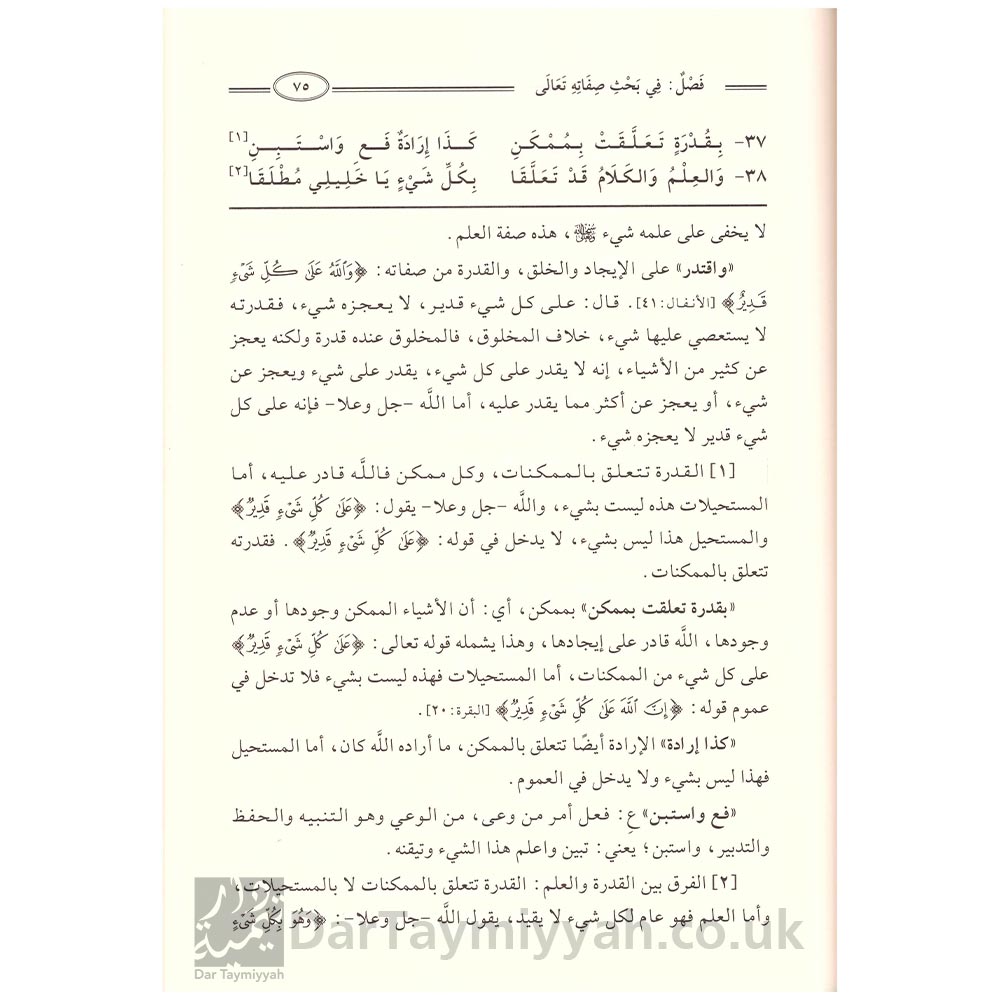 فَصْلٌ: فِي بَحْثِ صِفَاتِهِ تَعَالَى ٧٥
٣٧- بِقُدْرَةٍ تَعَلَّقَتْ بِمُمْكَنِ كَذَا إِرَادَةٌ فَعِ وَاسْتَبِنِ[١]
٣٨- وَالعِلْمُ وَالكَلَامُ قَدْ تَعَلَّقَا بِكُلِّ شَيْءٍ يَا خَلِيلِي مُطْلَقَا[٢]
لا يخفى على علمه شيء ﷻ، هذه صفة العلم.
«واقتدر» على الإيجاد والخلق، والقدرة من صفاته: ﴿وَٱللَّهُ عَلَىٰ كُلِّ شَىْءٍ
قَدِيرٌ﴾ [الأنفال: ٤١]. قال: على كل شيء قدير، لا يعجزه شيء، فقدرته
لا يستعصي عليها شيء، خلاف المخلوق، فالمخلوق عنده قدرة ولكنه يعجز
عن كثير من الأشياء، إنه لا يقدر على كل شيء، يقدر على شيء ويعجز عن
شيء، أو يعجز عن أكثر مما يقدر عليه، أما اللَّه -جل وعلا- فإنه على كل
شيء قدير لا يعجزه شيء.
[١] القدرة تتعلق بالممكنات، وكل ممكن فاللَّه قادر عليه، أما
المستحيلات هذه ليست بشيء، واللَّه -جل وعلا- يقول: ﴿عَلَىٰ كُلِّ شَىْءٍ قَدِيرٌ﴾
والمستحيل هذا ليس بشيء، لا يدخل في قوله: ﴿عَلَىٰ كُلِّ شَىْءٍ قَدِيرٌ﴾. فقدرته
تتعلق بالممكنات.
«بقدرة تعلقت بممكن» بممكن، أي: أن الأشياء الممكن وجودها أو عدم
وجودها، اللَّه قادر على إيجادها، وهذا يشمله قوله تعالى: ﴿عَلَىٰ كُلِّ شَىْءٍ قَدِيرٌ﴾
على كل شيء من الممكنات، أما المستحيلات فهذه ليست بشيء فلا تدخل في
عموم قوله: ﴿إِنَّ ٱللَّهَ عَلَىٰ كُلِّ شَىْءٍ قَدِيرٌ﴾ [البقرة: ٢٠].
«كذا إرادة» الإرادة أيضًا تتعلق بالممكن، ما أراده اللَّه كان، أما المستحيل
فهذا ليس بشيء ولا يدخل في العموم.
«فع واستبن» عِ: فعل أمر من وعى، من الوعي وهو التنبيه والحفظ
والتدبير، واستبن؛ يعني: تبين واعلم هذا الشيء وتيقنه.
[٢] الفرق بين القدرة والعلم: القدرة تتعلق بالممكنات لا بالمستحيلات،
وأما العلم فهو عام لكل شيء لا يقيد، يقول اللَّه -جل وعلا-: ﴿وَهُوَ بِكُلِّ شَىْءٍ
دار تيمية
Dar Taymiyyah
DarTaymiyyah.co.uk